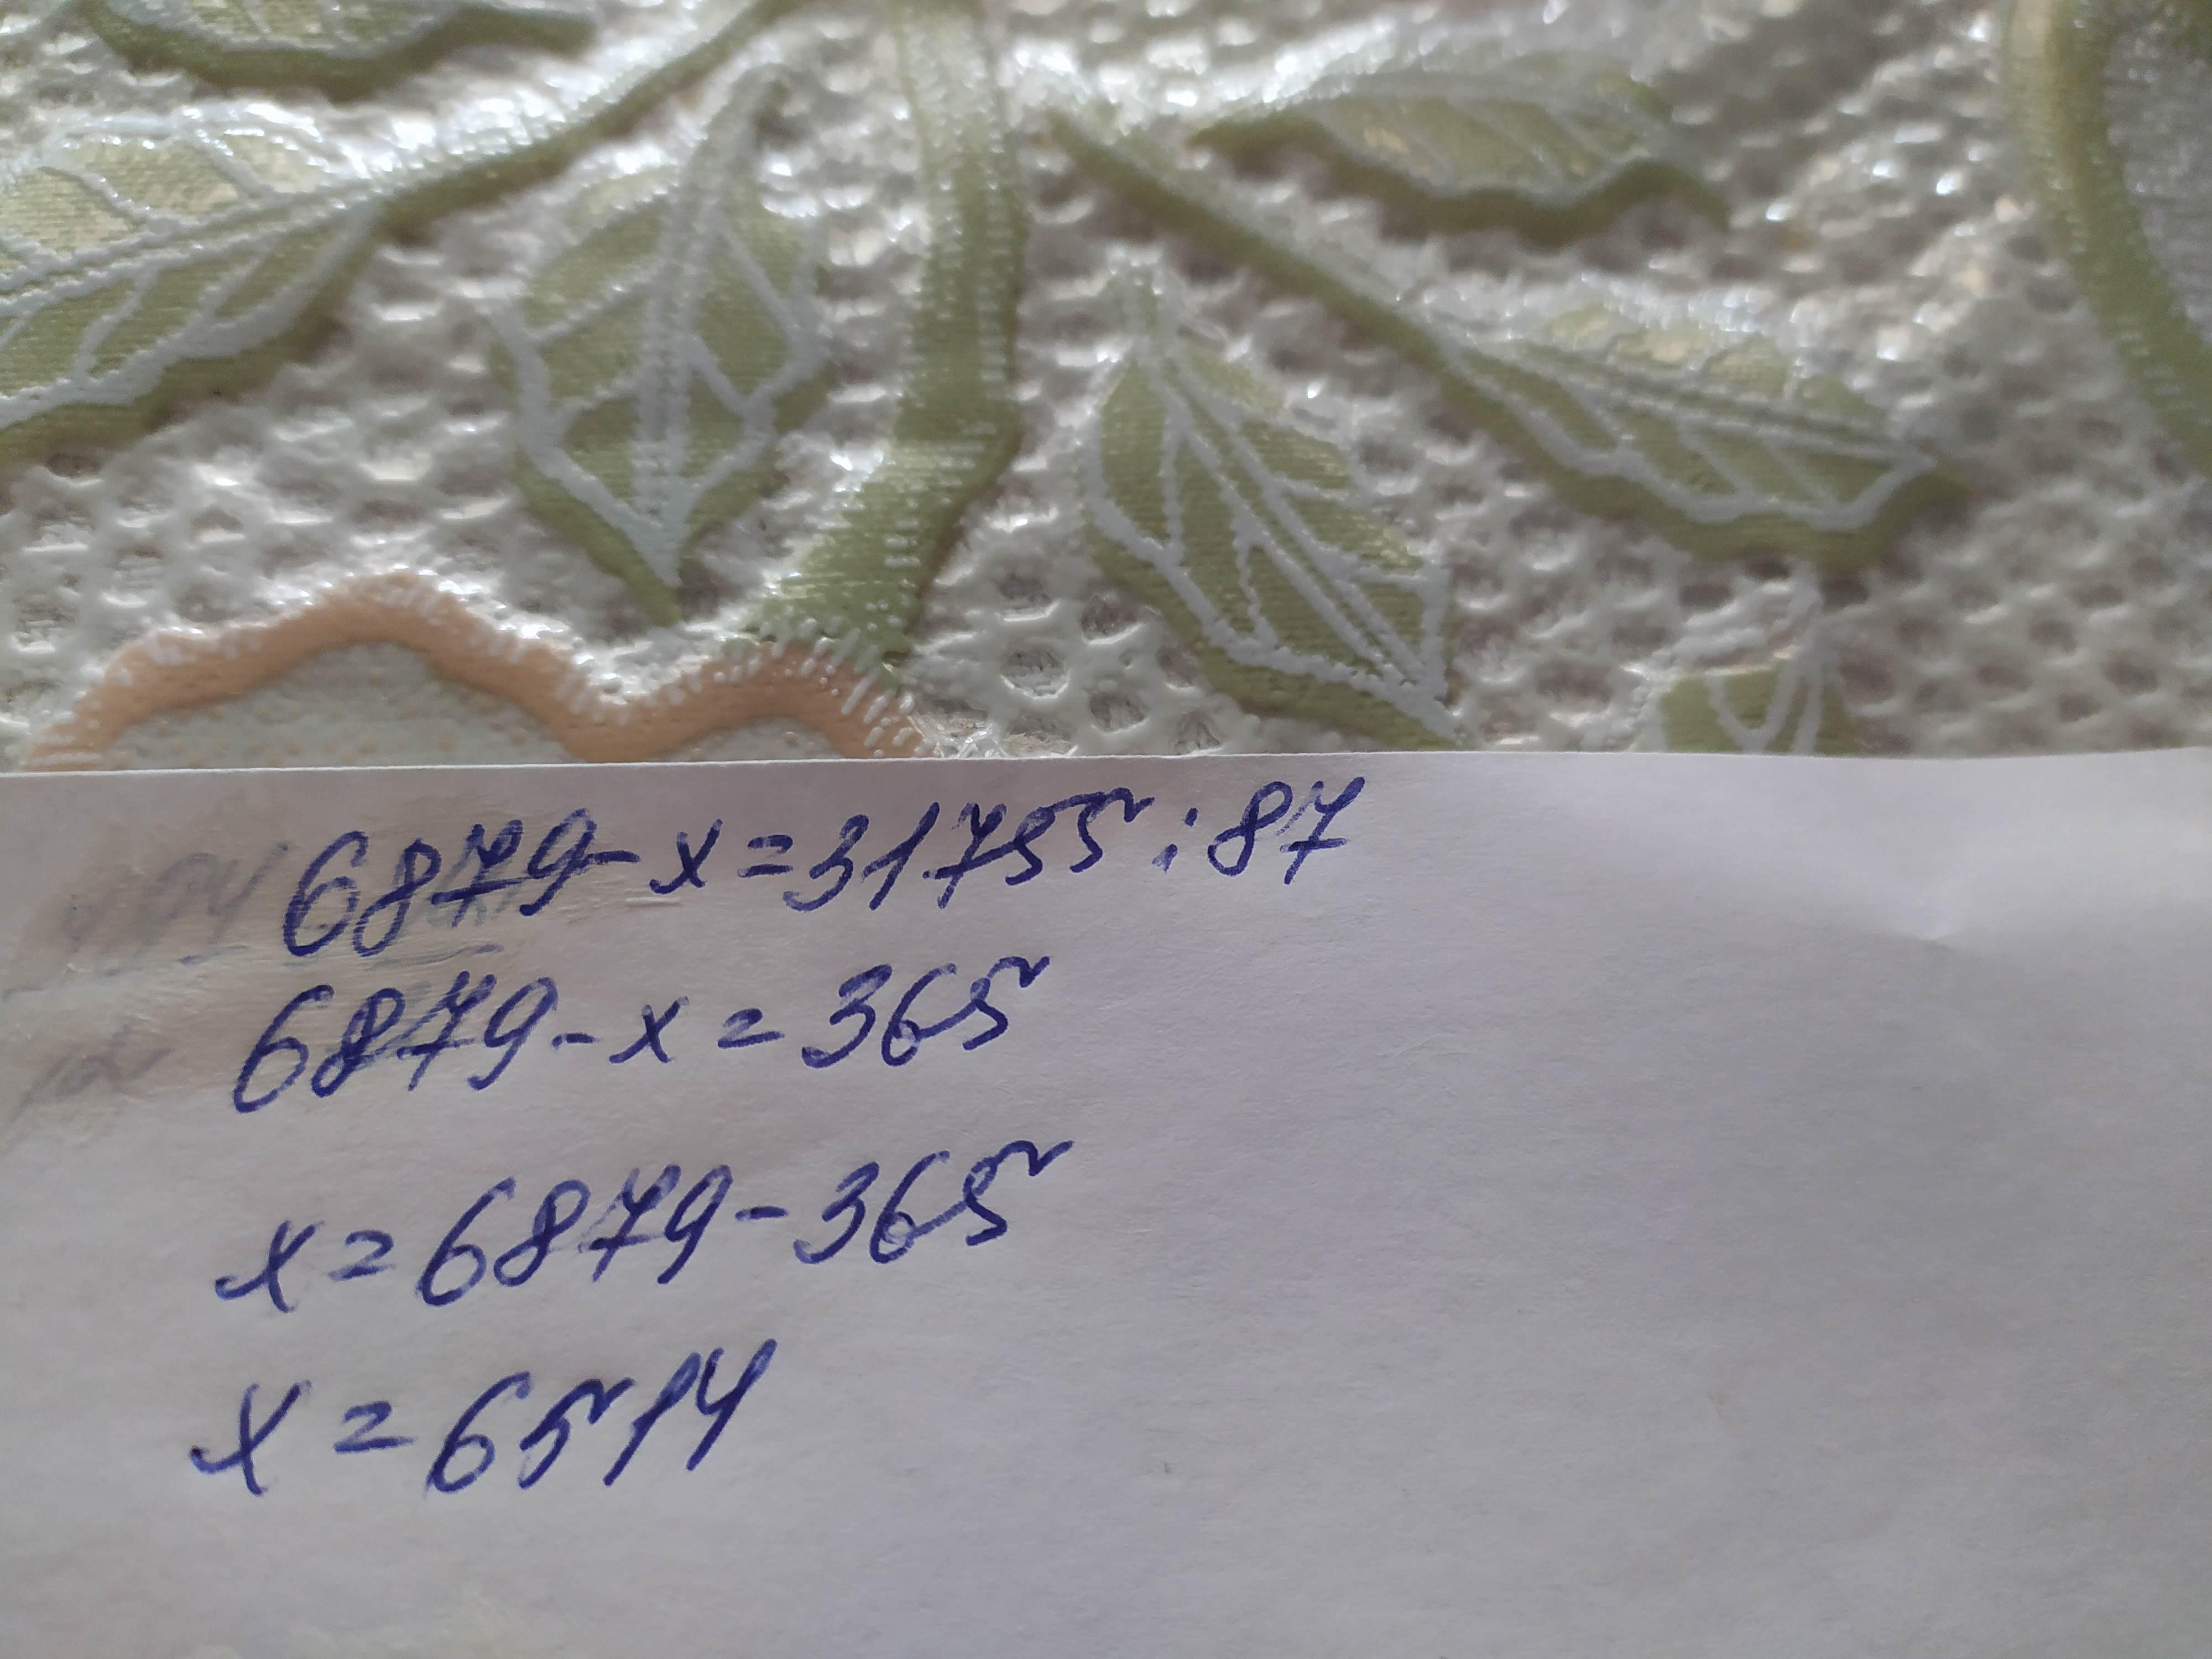 6879 - x = 31755 : 87
6879 - x = 365
x = 6879 - 365
x = 6514